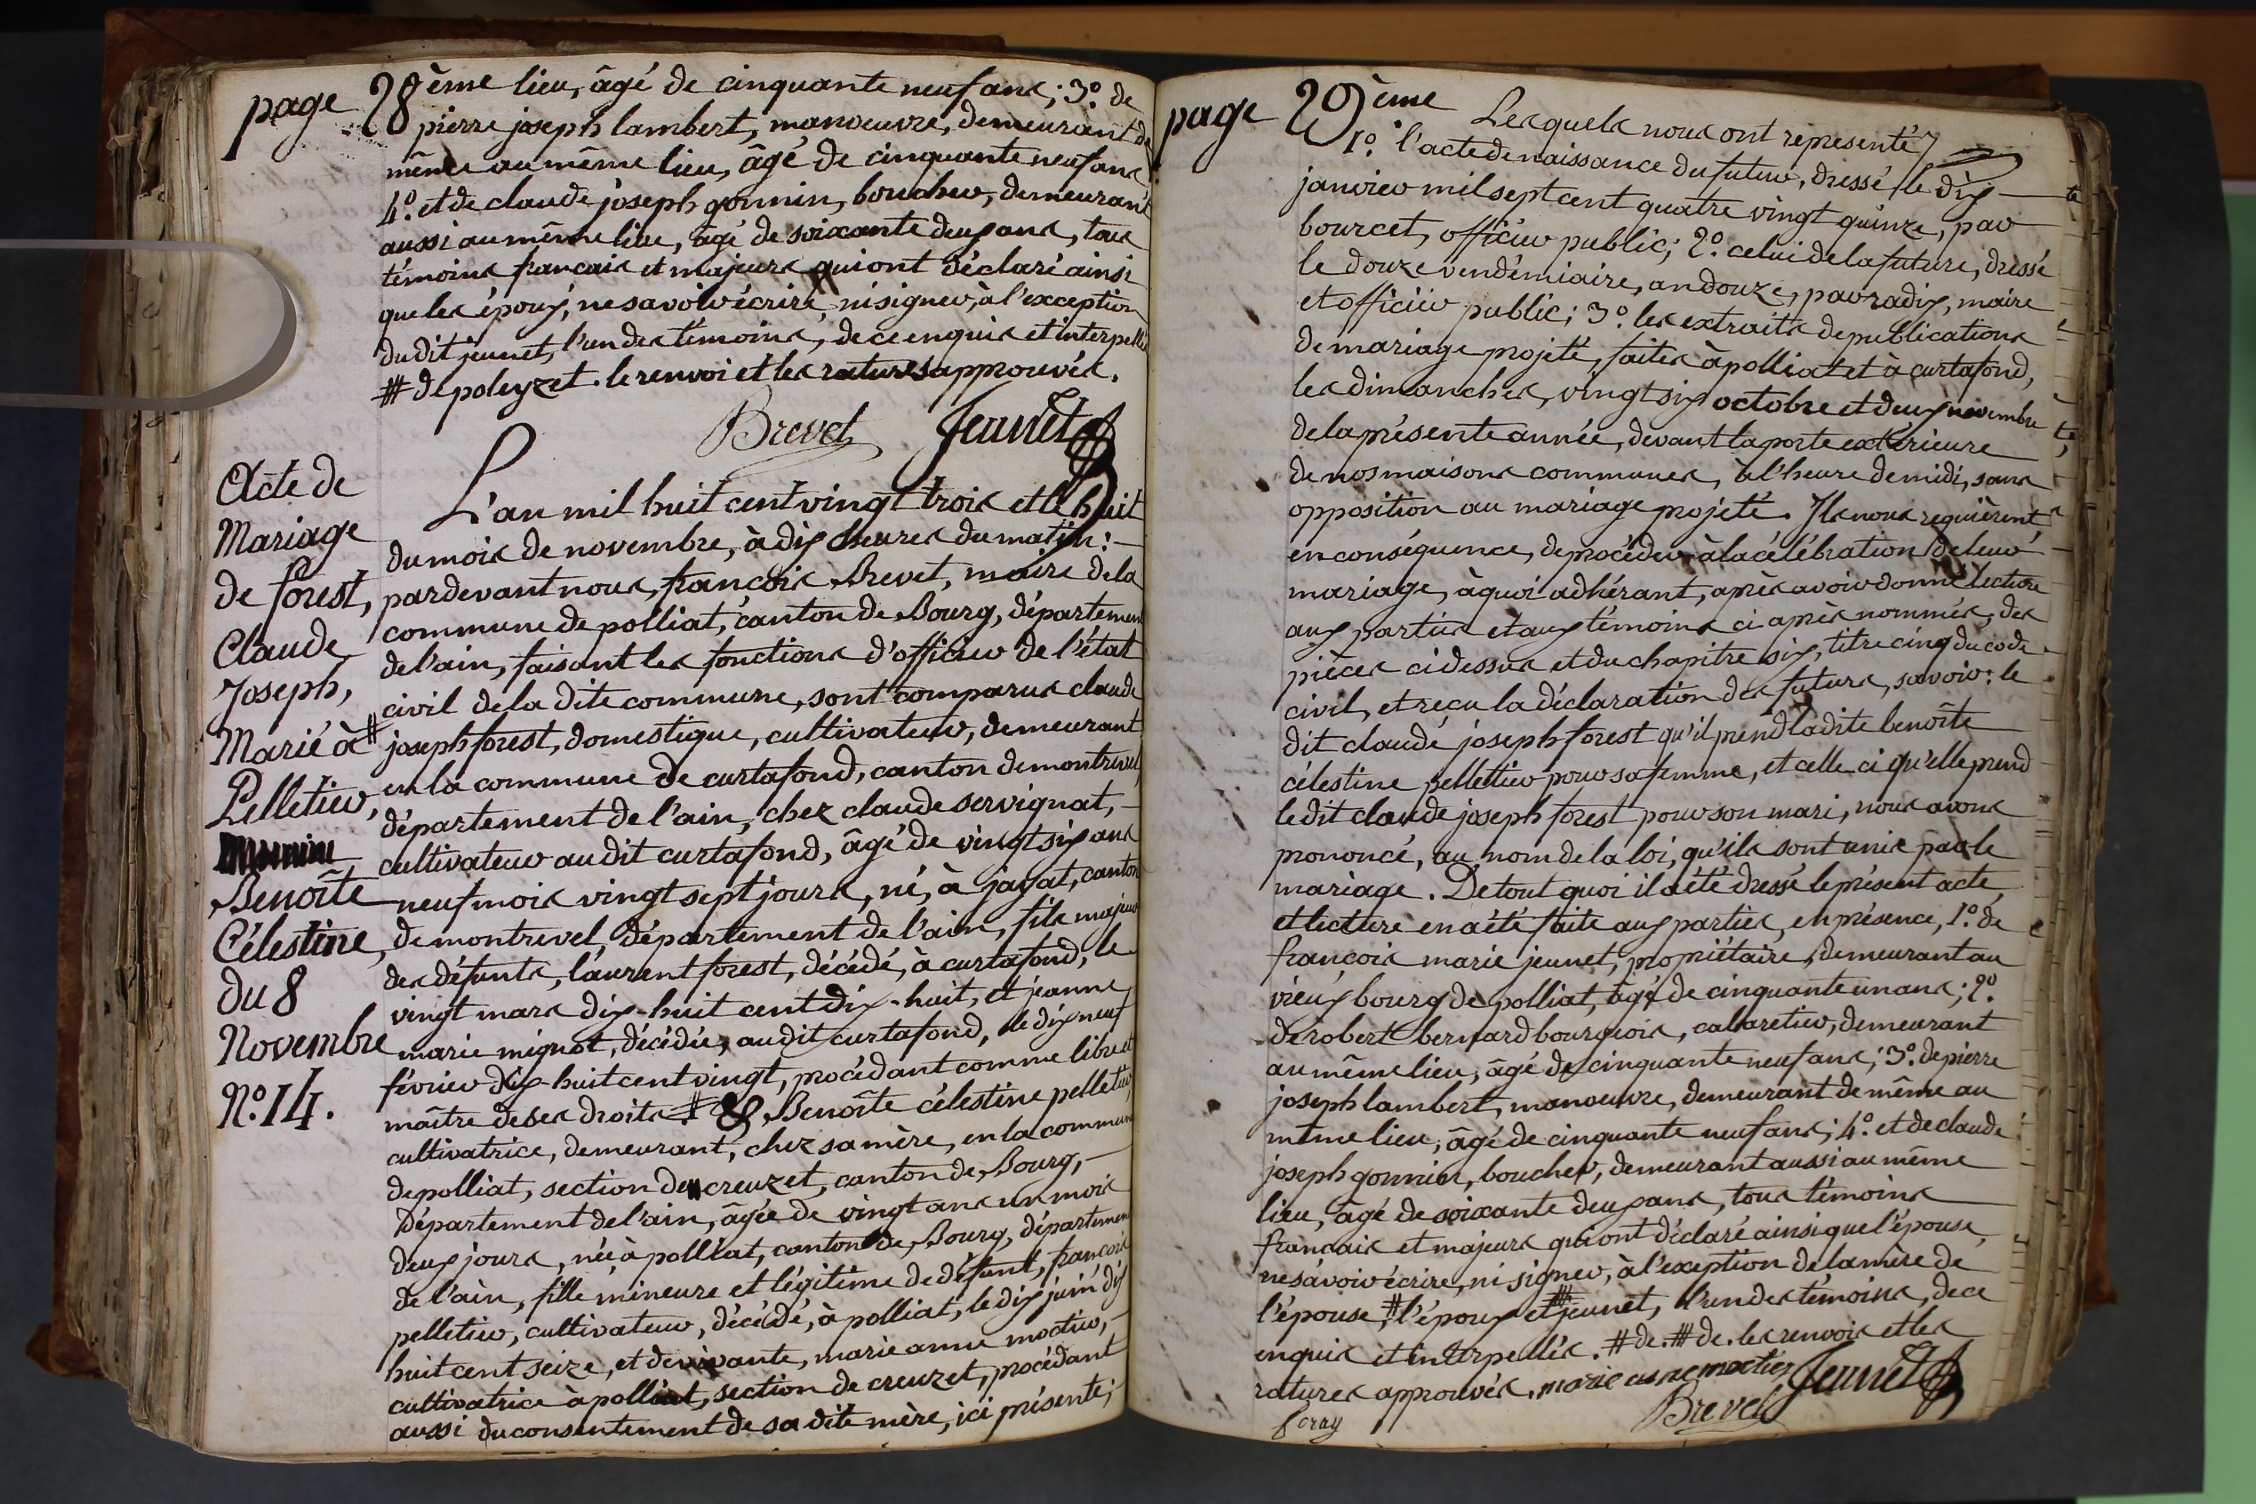 page 28ème lieu, âgé de cinquante neuf ans; 3º. de
pierre joseph lambert, manoeuvre, demeurant de
même au même lieu, âgé de cinquante neuf ans
4º. et de claude joseph gonnin, boucher, demeurant
aussi au même lieu, âgé de soixante deux ans, tous
témoins francais et majeurs qui ont déclaré ainsi
que les époux, ne savoir écrire, ni signer, à l'exception
du dit jeunet, l'un des témoins, de ce enquis et interpellé
# de poleyzet. le renvoi et les ratures approuvés.
Brevet Jeunet
Acte de
Mariage
de forest,
Claude
Joseph,
Marié à
Pelletier,
Benoîte
Célestine,
du 8
Novembre
Nº. 14.
L'an mil huit cent vingt trois et le huit
du mois de novembre, à dix heures du matin:
pardevant nous, francois Brevet, maire de la
commune de polliat, canton de Bourg, département
de l'ain, faisant les fonctions d'officier de l'état
civil de la dite commune, sont comparus claude
# joseph forest, domestique, cultivateur, demeurant
en la commune de curtafond, canton de montrevel,
département de l'ain, chez claude servignat,
cultivateur au dit curtafond, âgé de vingt six ans
neuf mois vingt sept jours, né, à jayat, canton
de montrevel, département de l'ain, fils majeur
des défunts, laurent forest, décédé, à curtafond, le
vingt mars dix-huit cent dix-huit, et jeanne
marie mignot, décédée, au dit curtafond, le dix neuf
février dix-huit cent vingt, procédant comme libre et
maître de ses droits # & Benoîte célestine pelletier,
cultivatrice, demeurant, chez sa mère, en la commune
de polliat, section de creuzet, canton de Bourg,
département de l'ain, âgée de vingt ans un mois
deux jours, née, à polliat, canton de Bourg, département
de l'ain, fille mineure et légitime de défunt, francois
pelletier, cultivateur, décédé, à polliat, le dix juin dix
huit cent seize, et de vivante, marie anne moctier,
cultivatrice à polliat, section de creuzet, procédant
aussi du consentement de sa dite mère, ici présente;
page 29ème Lesquels nous ont representé
1º. l'acte de naissance du futur, dressé le dix
janvier mil sept cent quatre vingt quinze, par
bourcet, officier public; 2º. celui de la future, dressé
le douze vendémiaire, an douze, par radix, maire
et officier public; 3º. les extraits de publications
de mariage projeté, faites à polliat et à curtafond,
les dimanches, vingt six octobre et deux novembre
de la présente année, devant la porte extérieure
de nos maisons communes, à l'heure de midi, sans
opposition au mariage projeté. Ils nous requièrent
en conséquence, de procéder à la célébration de leur
mariage, à quoi adhérant, après avoir donné lecture
aux parties et aux témoins ci après nommés, des
pièces ci dessus et du chapitre six, titre cinq du code
civil, et reçu la déclaration des futurs, savoir: le
dit claude joseph forest qu'il prend la dite benoîte
célestine pelletier pour sa femme, et celle ci qu'elle prend
le dit claude joseph forest pour son mari, nous avons
prononcé, au nom de la loi, qu'ils sont unis par le
mariage. De tout quoi il a été dressé le présent acte
et lecture en a été faite aux parties, en présence, 1º. de
francois marie jeunet, propriétaire, demeurant au
vieux bourg de polliat, âgé de cinquante un ans; 2º.
de robert bernard bourgeois, cabaretier, demeurant
au même lieu, âgé de cinquante neuf ans; 3º. de pierre
joseph lambert, manoeuvre, demeurant de même au
même lieu, âgé de cinquante neuf ans; 4º. et de claude
joseph gonnin, boucher, demeurant aussi au même
lieu, âgé de soixante deux ans, tous témoins
francais et majeurs qui ont déclaré ainsi que l'épouse,
ne savoir écrire, ni signer, à l'exception de la mère de
l'épouse, # l'époux et # jeunet, l'un des témoins, de ce
enquis et interpellés. # de. # de. les renvois et les
ratures approuvés. marie anne moctier Jeunet
foray Brevet